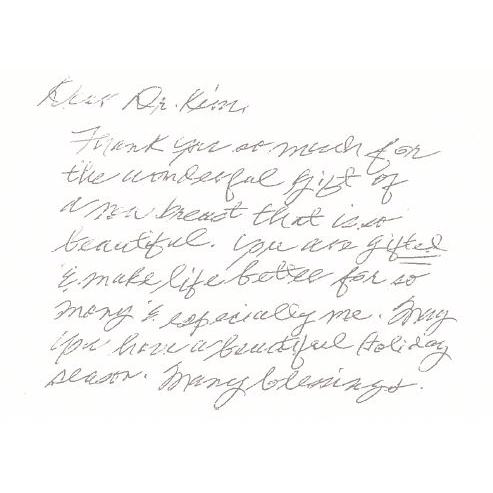 Dear Dr. Kim,
Thank you so much for
the wonderful gift of
a new breast that is so
beautiful. You are gifted
& make life better for so
many & especially me. May
you have a beautiful Holiday
season. Many blessings.